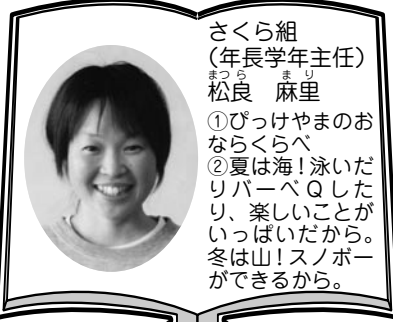 さくら組
（年長学年主任）
まつら　まり
松良　麻里
①ぴっけやまのお
ならくらべ
②夏は海！泳いだ
りバーベＱした
り、楽しいことが
いっぱいだから。
冬は山！スノボー
ができるから。